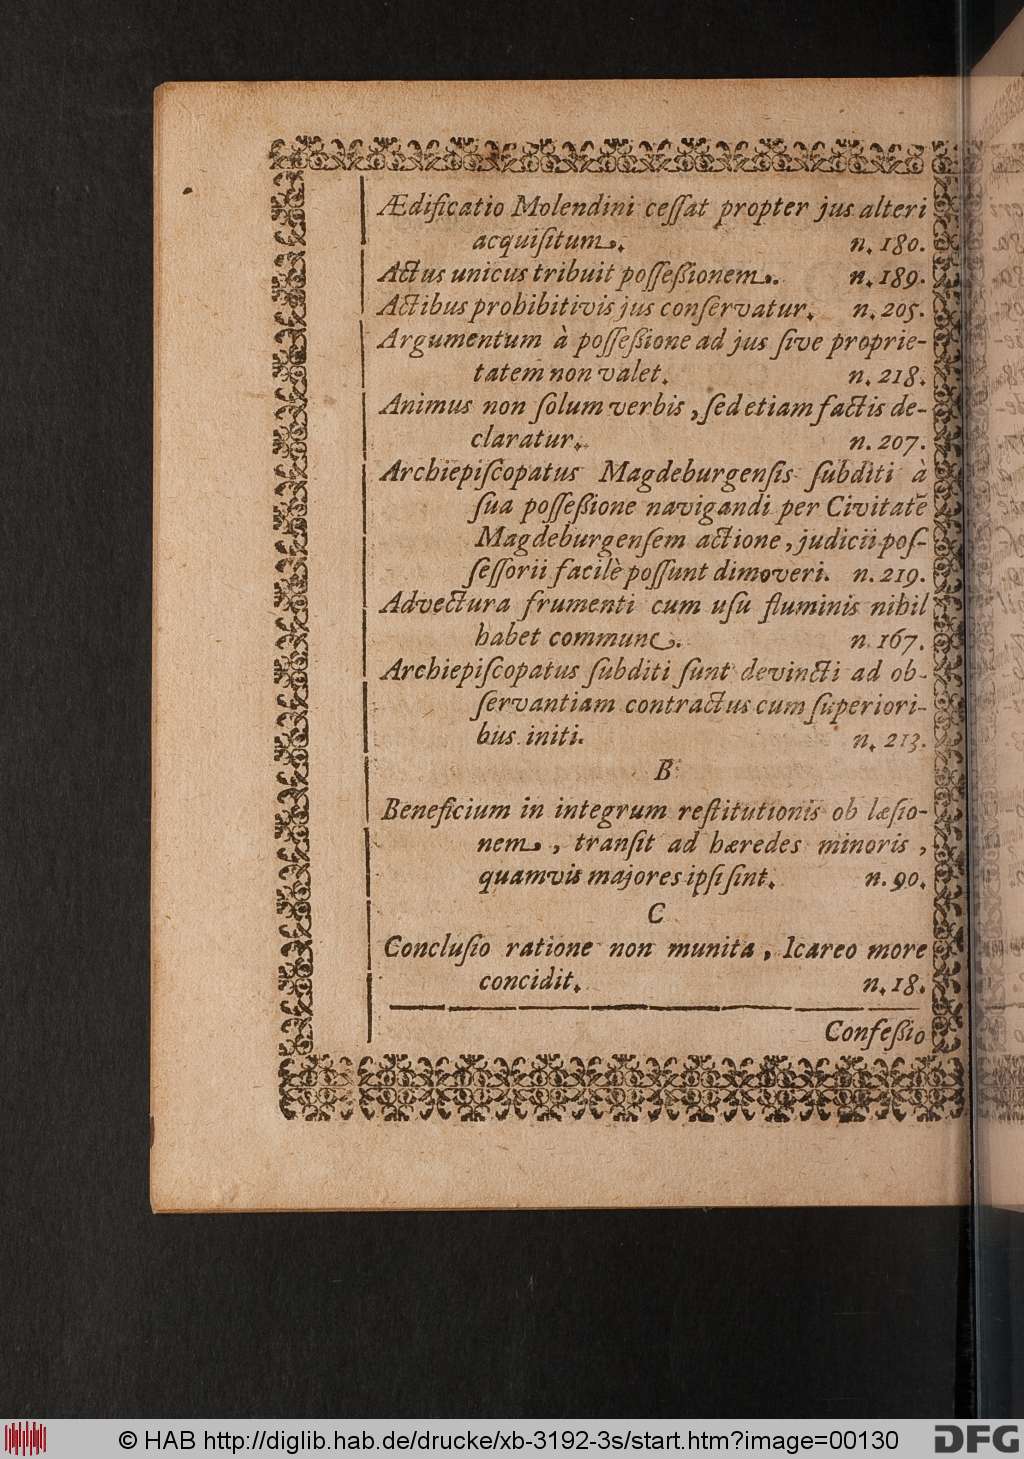 Ædificatio Molendini ceſſat propter jus alteri
acquiſitum. n. 180.
Actus unicus tribuit poſſeßionem. n. 189.
Actibus prohibitivis jus conſervatur. n. 205.
Argumentum à poſſeßione ad jus ſive proprie-
tatem non valet. n. 218.
Animus non ſolum verbis, ſed etiam factis de-
claratur. n. 207.
Archiepiſcopatus Magdeburgenſis ſubditi à
ſua poſſeßione navigandi per Civitatẽ
Magdeburgenſem actione, judicii poſ-
ſeſſorii facilè poſſunt dimoveri. n. 219.
Advectura frumenti cum uſu fluminis nihil
habet commune. n. 167.
Archiepiſcopatus ſubditi ſunt devincti ad ob-
ſervantiam contractus cum ſuperiori-
bus initi. n. 213.
B
Beneficium in integrum reſtitutionis ob læſio-
nem, tranſit ad hæredes minoris,
quamvis majores ipſi ſint. n. 90.
C
Concluſio ratione non munita, Icareo more
concidit. n. 18.
Confeßio
© HAB http://diglib.hab.de/drucke/xb-3192-3s/start.htm?image=00130
DFG